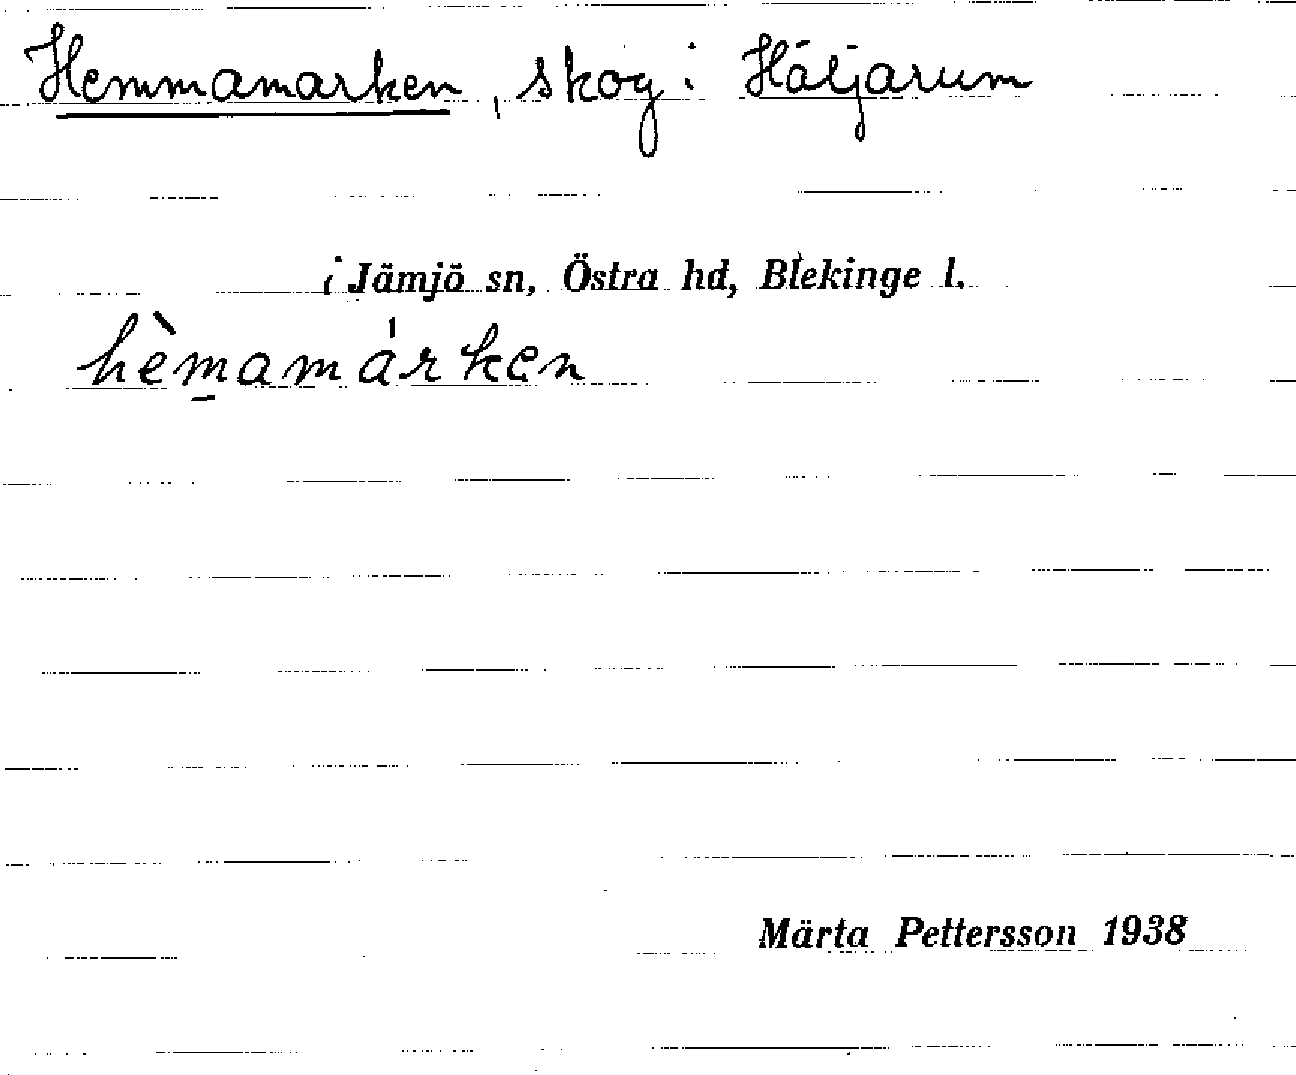 Hemmamarken, skog i Häljarum
i Jämjö sn, Östra hd, Blekinge l.
hèm̠amárken
Märta Pettersson 1938